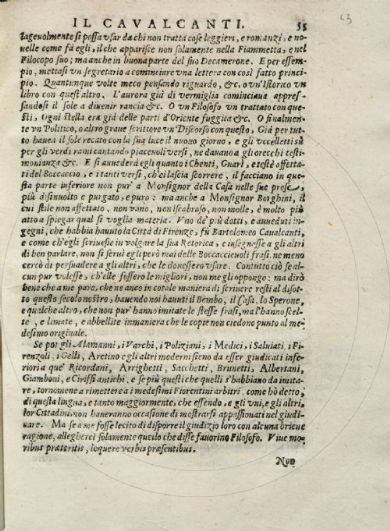 IL CAVALCANTI. 55
tageuolmente si possa vsar da chi non tratta cose leggieri, e romanzi, e no-
uelle come fà egli, il che apparisce non solamente nella Fiammetta, e nel
Filocopo suo; ma anche in buona parte del suo Decamerone. E per essem-
pio, mettasi vn segretario a cominciare vna lettera con sì fatto princi-
pio. Quantunque volte meco pensando riguardo, &c. o vn'Istorico vn
libro con quest'altro. L'aurora già di vermiglia cominciaua appres-
sandosi il sole a diuenir rancia &c. O vn Filosofo vn trattato con que-
sti, Ogni stella era già delle parti d'Oriente fuggita &c. O finalmen-
te vn Politico, o altro graue scrittore vn Discorso con questo, Già per tut-
to haueua il sole recato con la sua luce il nuouo giorno, e gli vccelletti sù
per gli verdi rami cantando piaceuoli versi, ne dauano a gli orecchi testi-
monianza &c. E si auuederà egli quanto i
del Boccaccio, e i tanti versi, ch'ei lascia scorrere, il facciano in que-
sta parte inferiore non pur' a Monsignor della Casa nelle sue prose,
più disinuolto e purgato, e puro: ma anche a Monsignor Borghini, il
cui stile non affettato, non vano, non iscabroso, non molle, è molto più
atto a spiegar qual si voglia materia. Vno de' più dotti, e aueduti in-
gegni, che habbia hauuto la Città di Firenze, fù Bartolomeo Caualcanti,
e come ch'egli scriuesse in volgare la sua Retorica, e insegnasse a gli altri
di ben parlare, non si seruì egli però mai delle Boccacceuoli frasi, ne meno
cercò di persuadere a gli altri, che le douessero vsare. Contutto ciò se al-
cun pur volesse, ch'elle fossero le migliori, non me gli oppongo: ma dirò
bene che a me pare, che ne anco in cotale maniera di scriuere resti al disot-
to questo secolo nostro, hauendo noi hauuto il Bembo, il Casa, lo Sperone,
e qualche altro, che non pur' hanno imitate le stesse frasi, ma l'hanno scel-
te, e limate, e abbellite in maniera che le copie non ciedono punto al me-
desimo originale.
Se poi gli Alamanni, i Varchi, i Poliziani, i Medici, i Saluiati, i Fi-
renzoli, i Gelli, Aretino e gli altri moderni sieno da esser giudicati infe-
riori a que' Ricordani, Arrighetti, Sacchetti, Brunetti, Albertani,
Giamboni, e Ciriffi antichi, e se più questi che quelli s'habbiano da imita-
re, tornomene a rimettere a i medesimi Fiorentini arbitri, come hò detto,
di questa lingua, e tanto maggiormente, che essendo, e gli vni, e gli altri,
lor Cittadini non haueranno occasione di mostrarsi appassionati nel giudi-
care. Ma se a me fosse lecito di disporre il giudizio loro con alcuna brieue
ragione, allegherei solamente quello che disse fauorino Filosofo. Viue mo-
ribus præteritis, loquere verbis præsentibus.
Non